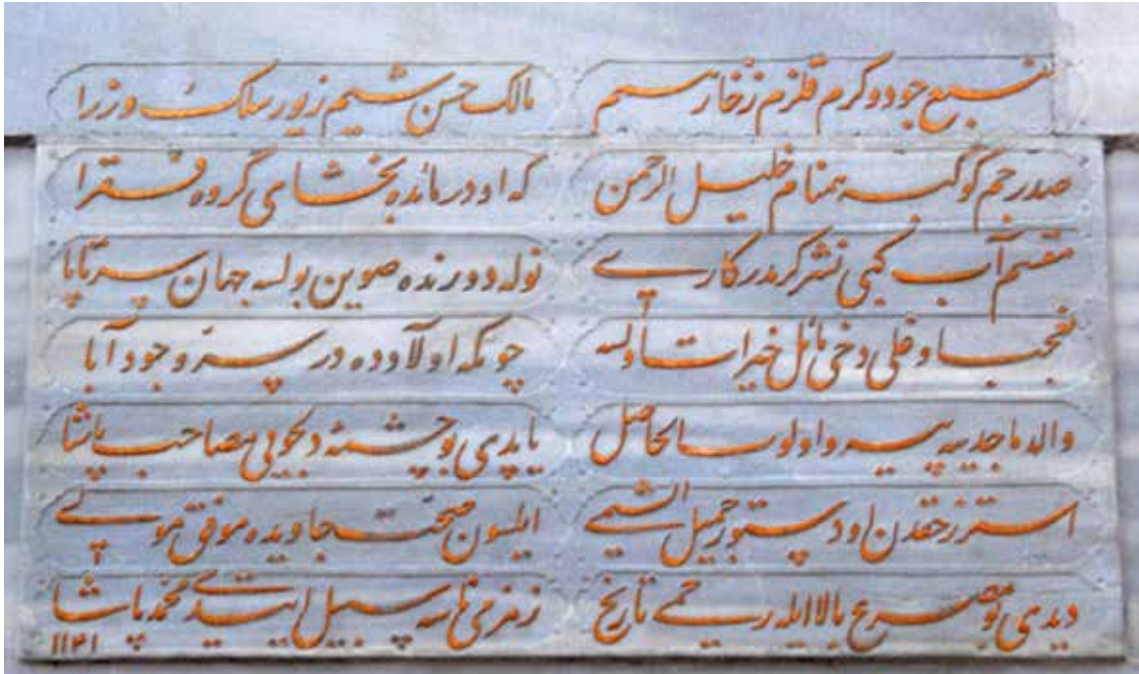 منبع جود و کرم قلزم زخار همم مالک حسن شیم زیور سلک وزرا
صدر جم کوکبه همنام خلیل الرحمن که اودر مائده بخشای گروه فقرا
مقسم آب کبی نشر کرمدر کاری نوله دورنده صوین بولسه جهان سرتاپا
نعجب اوغلی دخی مائل خیرات اولسه چونکه اولادده در سرّ وجود آبا
والد ماجدینه پیرو اولوب الحاصل یاپدی بو چشمهٔ دلجویی مصاحب پاشا
استرز حقدن او دستور جمیل الشیمی ایلسون صحت جاویده موفق مولی
دیدی بو مصرع بالا ایله رحمی تاریخ زمزمی ناسه سبیل ایتدی محمد پاشا
١١٤١